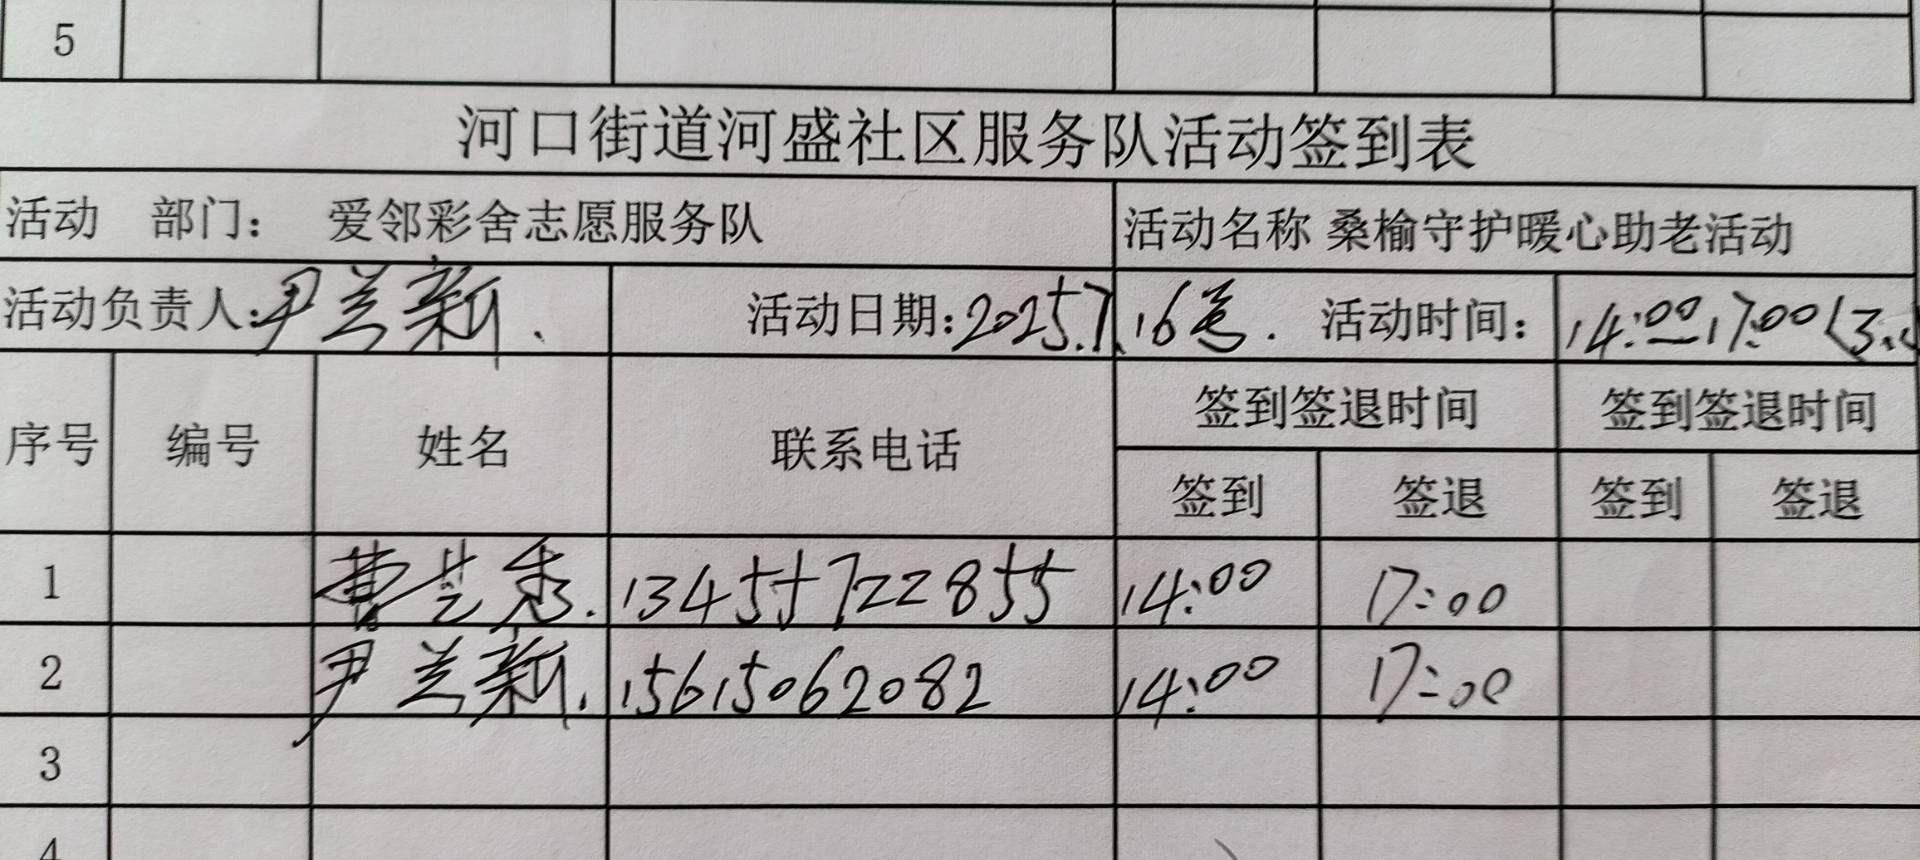 5
河口街道河盛社区服务队活动签到表
活动 部门： 爱邻彩舍志愿服务队 活动名称 桑榆守护暖心助老活动
活动负责人：尹兰新. 活动日期：2025.7.16 活动时间： 14:00—17:00 (3.
序号 编号 姓名 联系电话 签到签退时间 签到签退时间
签到 签退 签到 签退
1 曹兰秀. 13455722855 14:00 17:00
2 尹兰新. 15615062082 14:00 17:00
3
4